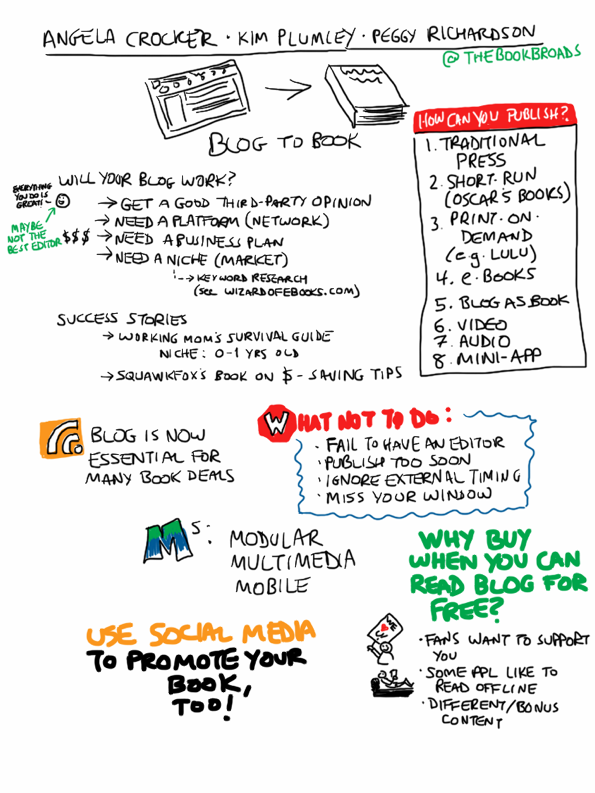 ANGELA CROCKER · KIM PLUMLEY · PEGGY RICHARDSON
@THEBOOKBROADS
BLOG TO BOOK
HOW CAN YOU PUBLISH?
1. TRADITIONAL
PRESS
2. SHORT·RUN
(OSCAR'S BOOKS)
3. PRINT·ON·
DEMAND
(e.g. LULU)
4. e·BOOKS
5. BLOG AS BOOK
6. VIDEO
7. AUDIO
8. MINI-APP
WILL YOUR BLOG WORK?
EVERYTHING
YOU DO IS
GREAT!
MAYBE
NOT THE
BEST EDITOR
→ GET A GOOD THIRD-PARTY OPINION
→ NEED A PLATFORM (NETWORK)
$$$ → NEED A BUSINESS PLAN
→ NEED A NICHE (MARKET)
→ KEYWORD RESEARCH
(SEE WIZARDOFEBOOKS.COM)
SUCCESS STORIES
→ WORKING MOM'S SURVIVAL GUIDE
NICHE: 0-1 YRS OLD
→ SQUAWKFOX'S BOOK ON $-SAVING TIPS
BLOG IS NOW
ESSENTIAL FOR
MANY BOOK DEALS
WHAT NOT TO DO:
· FAIL TO HAVE AN EDITOR
· PUBLISH TOO SOON
· IGNORE EXTERNAL TIMING
· MISS YOUR WINDOW
M's: MODULAR
MULTIMEDIA
MOBILE
WHY BUY
WHEN YOU CAN
READ BLOG FOR
FREE?
· FANS WANT TO SUPPORT
YOU
· SOME PPL LIKE TO
READ OFFLINE
· DIFFERENT/BONUS
CONTENT
USE SOCIAL MEDIA
TO PROMOTE YOUR
BOOK,
TOO!